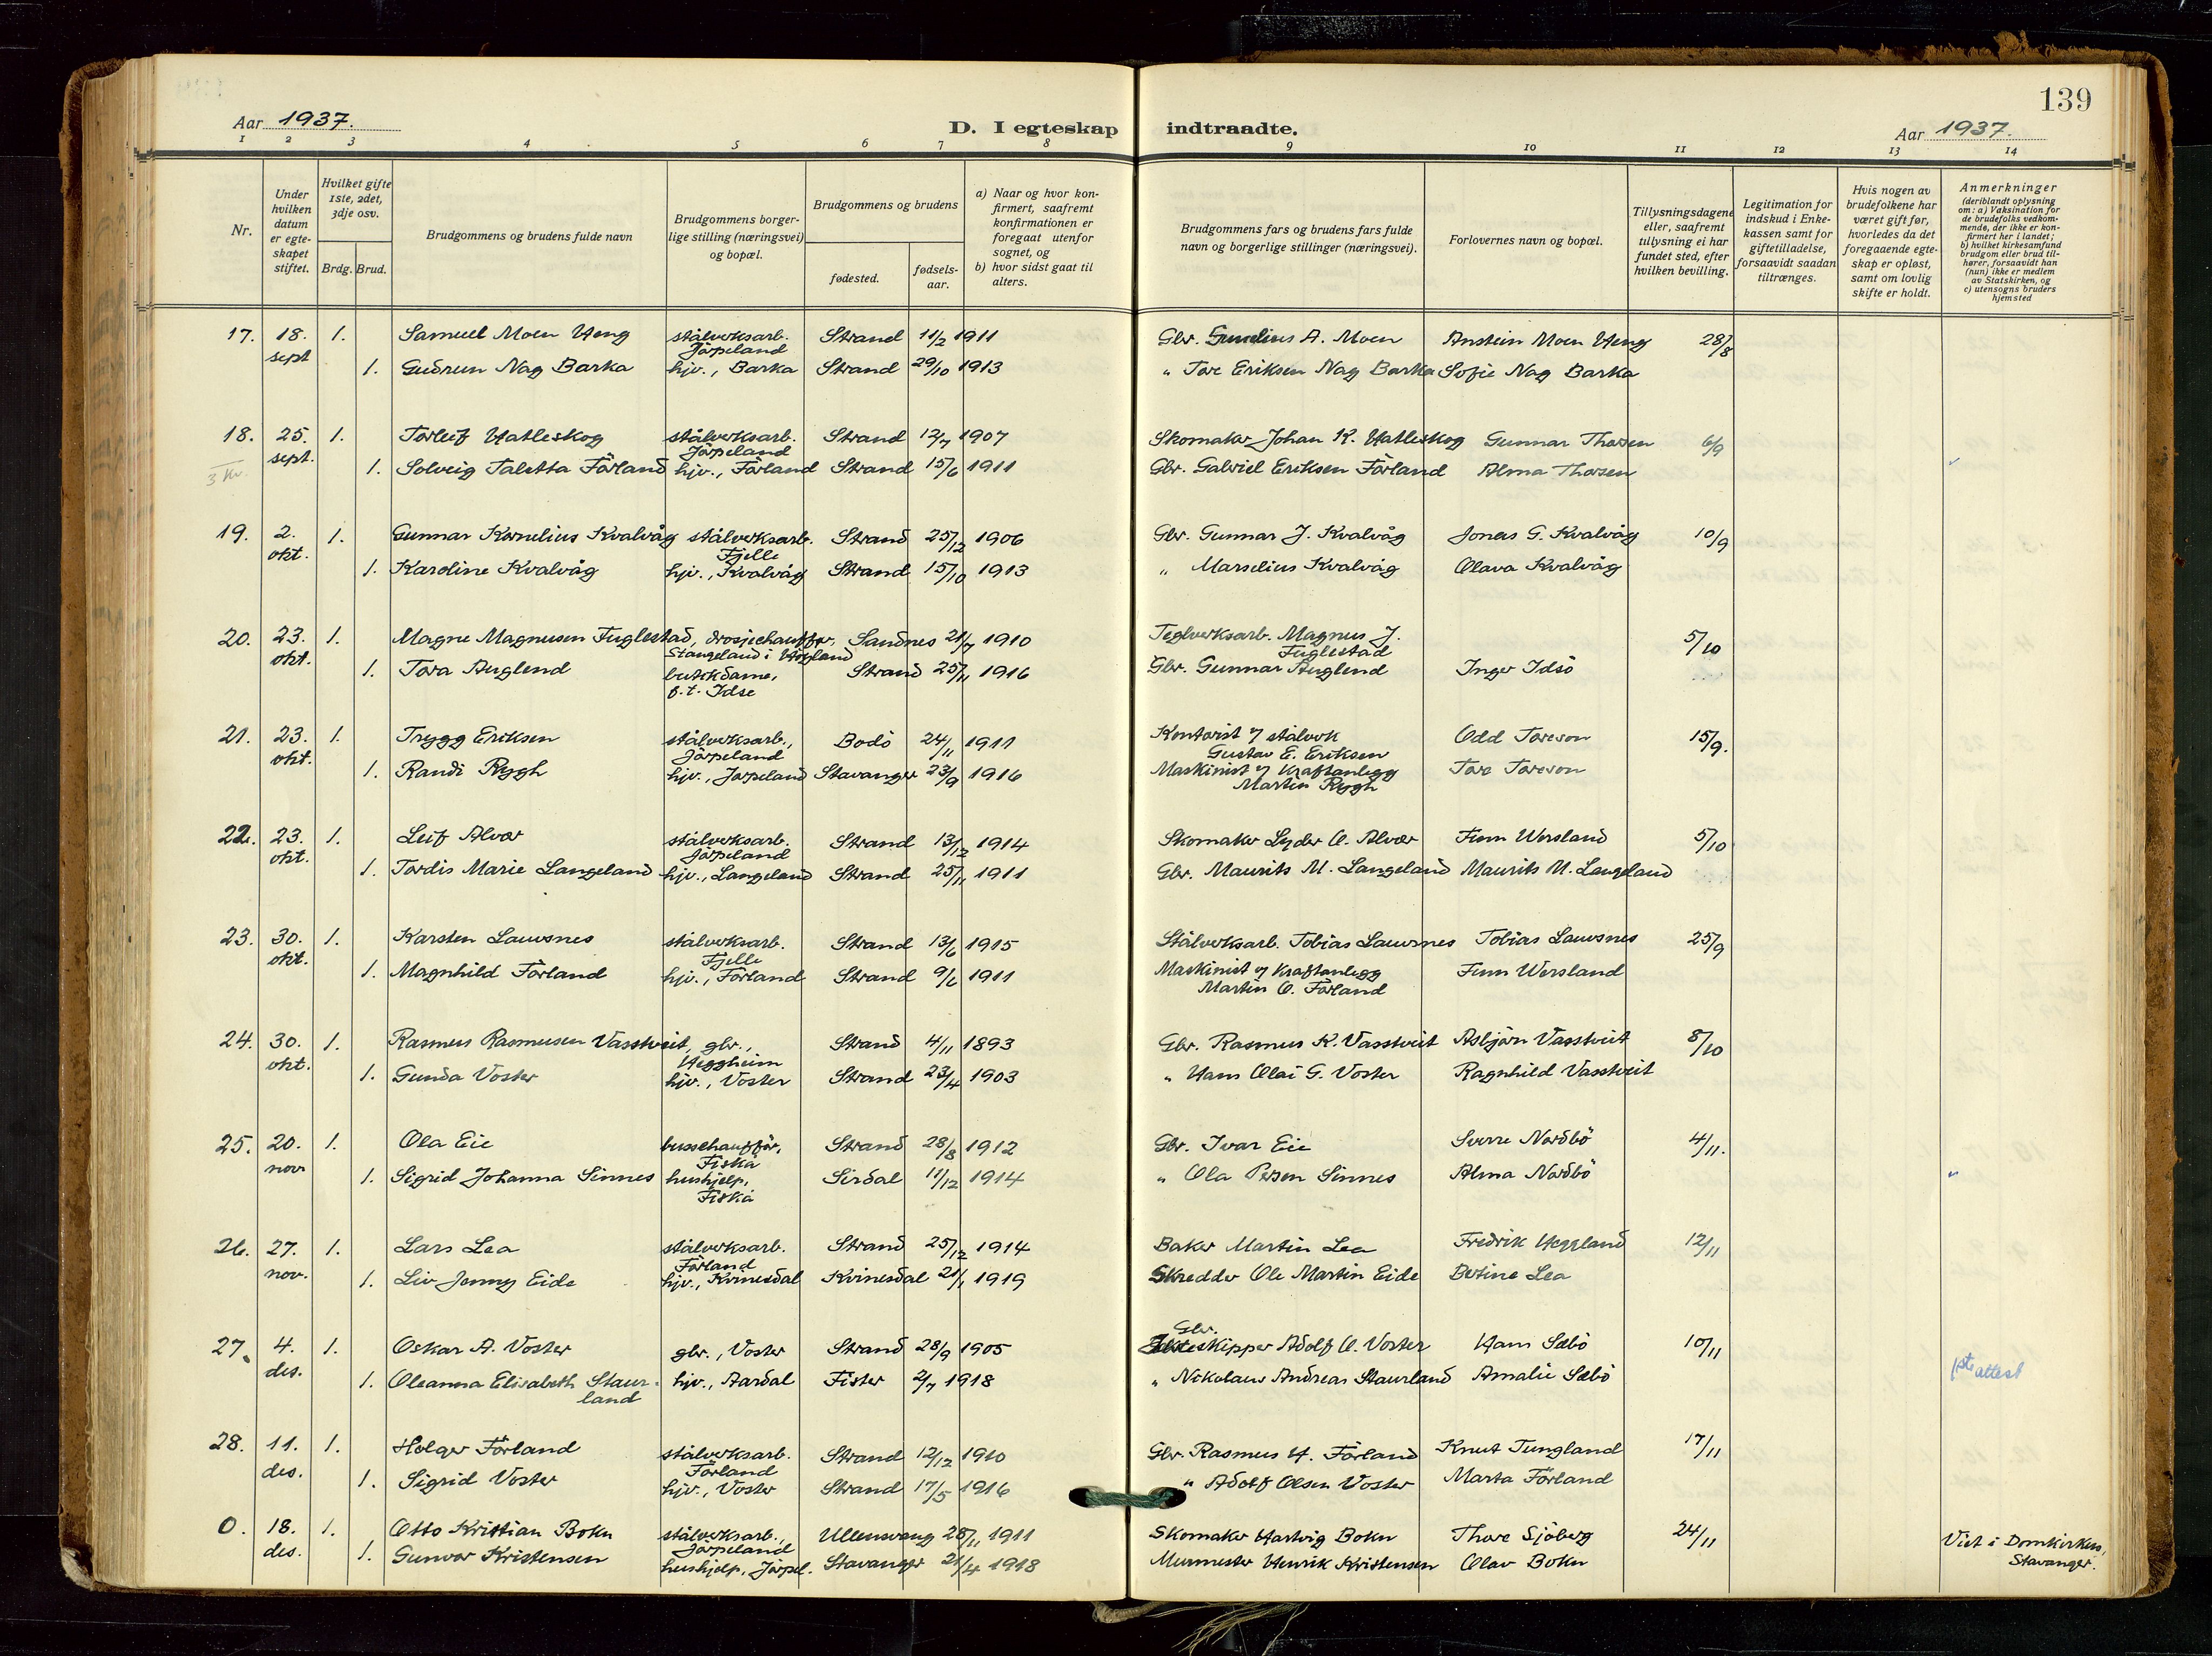 139
Aar 1937.
D. I egteskap indtraadte.
Aar 1937.
1 2 3 4 5 6 7 8 9 10 11 12 13 14
Nr.
Under hvilken datum er egteskapet stiftet.
Hvilket gifte 1ste, 2det, 3dje osv.
Brdg. Brud.
Brudgommens og brudens fulde navn
Brudgommens borgerlige stilling (næringsvei) og bopæl.
Brudgommens og brudens
fødested.
fødselsaar.
a) Naar og hvor konfirmert, saafremt konfirmationen er foregaat utenfor sognet, og
b) hvor sidst gaat til alters.
Brudgommens fars og brudens fars fulde navn og borgerlige stillinger (næringsvei).
Forlovernes navn og bopæl.
Tillysningsdagene eller, saafremt tillysning ei har fundet sted, efter hvilken bevilling.
Legitimation for indskud i Enkekassen samt for giftetilladelse, forsaavidt saadan tiltrænges.
Hvis nogen av brudefolkene har været gift før, hvorledes da det foregaaende egteskap er opløst, samt om lovlig skifte er holdt.
Anmerkninger (deriblandt oplysning om: a) Vaksination for de brudefolks vedkommende, der ikke er konfirmert her i landet; b) hvilket kirkesamfund brudgom eller brud tilhører, forsaavidt han (hun) ikke er medlem av Statskirken, og c) utensogns bruders hjemsted
17. 18. sept 1. Samuel Moen Heng stålverksarb. Jörpeland Strand 11/2 1911 Gbr. Gunelius A. Moen Anstein Moen Heng 28/8
1. Gudrun Nag Barka hjv., Barka Strand 29/10 1913 " Tore Eriksen Nag Barka Sofie Nag Barka
18. 25. sept. 1. Torleif Hatleskog stålverksarb. Jörpeland Strand 12/7 1907 Skomaker Johan K. Hatleskog Gunnar Thorsen 6/9
1. Solveig Taletta Förland hjv., Förland Strand 15/6 1911 Gbr. Gabriel Eriksen Förland Alma Thorsen
19. 2. okt. 1. Gunnar Kornelius Kvalvåg stålverksarb. Fjelle Strand 25/12 1906 Gbr. Gunnar J. Kvalvåg Jonas G. Kvalvåg 10/9
1. Karoline Kvalvåg hjv., Kvalvåg Strand 15/10 1913 " Marselius Kvalvåg Olava Kvalvåg
20. 23. okt. 1. Magne Magnusen Fuglestad, drosjechauffør, Stangeland i Höyland Sandnes 21/7 1910 Teglverksarb. Magnus J. Fuglestad 5/10
1. Tora Auglend butikkdame, p.t. Idse Strand 25/11 1916 Gbr. Gunnar Auglend Inger Idsö
21. 23. okt. 1. Trygg Eriksen stålverksarb., Jörpeland Bodö 24/11 1911 Kontorist v/ stålverk Gustav E. Eriksen Odd Toreson 15/9.
1. Randi Rygh hjv., Jörpeland Stavanger 23/9 1916 Maskinist v/ Kraftanlegg Martin Rygh Tore Toreson
22. 23. okt. 1. Leif Alvær stålverksarb. Jörpeland Strand 13/12 1914 Skomaker Lyder O. Alvær Finn Wersland 5/10
1. Tordis Marie Langeland hjv., Langeland Strand 25/11 1911 Gbr. Maurits M. Langeland Maurits M. Langeland
23. 30. okt. 1. Karsten Lauvsnes stålverksarb. Fjelle Strand 13/6 1915 Stålverksarb. Tobias Lauvsnes Tobias Lauvsnes 25/9
1. Magnhild Förland hjv., Förland Strand 9/6 1911 Maskinist v/ Kraftanlegg Martin O. Förland Finn Wersland
24. 30. okt. 1. Rasmus Rasmusen Vasstveit, gbr., Heggheim Strand 4/11 1893 Gbr. Rasmus K. Vasstveit Asbjörn Vasstveit 8/10
1. Gunda Voster hjv., Voster Strand 23/4 1903 " Hans Olai G. Voster Ragnhild Vasstveit
25. 20. nov 1. Ola Eie busschauffør, Fiskå Strand 28/8 1912 Gbr. Ivar Eie Sverre Nordbö 4/11.
1. Sigrid Johanna Sinnes hushjelp, Fiskå Sirdal 11/12 1914 " Ola Persen Sinnes Alma Nordbö
26. 27. nov. 1. Lars Lea stålverksarb. Förland Strand 25/12 1914 Baker Martin Lea Fredrik Heggland 12/11
1. Liv Jenny Eide hjv., Kvinesdal Kvinesdal 21/1 1919 Skredder Ole Martin Eide Betine Lea
27. 4. des. 1. Oskar A. Voster gbr., Voster Strand 28/9 1905 Gbr. Jakteskipper Adolf O. Voster Hans Sæbö 10/11
1. Oleanna Elisabeth Staurland hjv., Aardal Fister 2/7 1918 " Nikolaus Andreas Staurland Amalie Sæbö 1ste attest
28. 11. des. 1. Holger Förland stålverksarb. Förland Strand 12/12 1910 Gbr. Rasmus H. Förland Knut Tungland 17/11
1. Sigrid Voster hjv., Voster Strand 17/5 1916 " Adolf Olsen Voster Marta Förland
0. 18. des. 1. Otto Kristian Bokn stålverksarb., Jörpeland Ullensvang 28/11 1911 Skomaker Hartvig Bokn Thore Sjöberg 24/11 Viet i Domkirken, Stavanger.
1. Gunvor Kristensen hushjelp, Jörpel. Stavanger 21/4 1918 Murmester Henrik Kristensen Olav Bokn